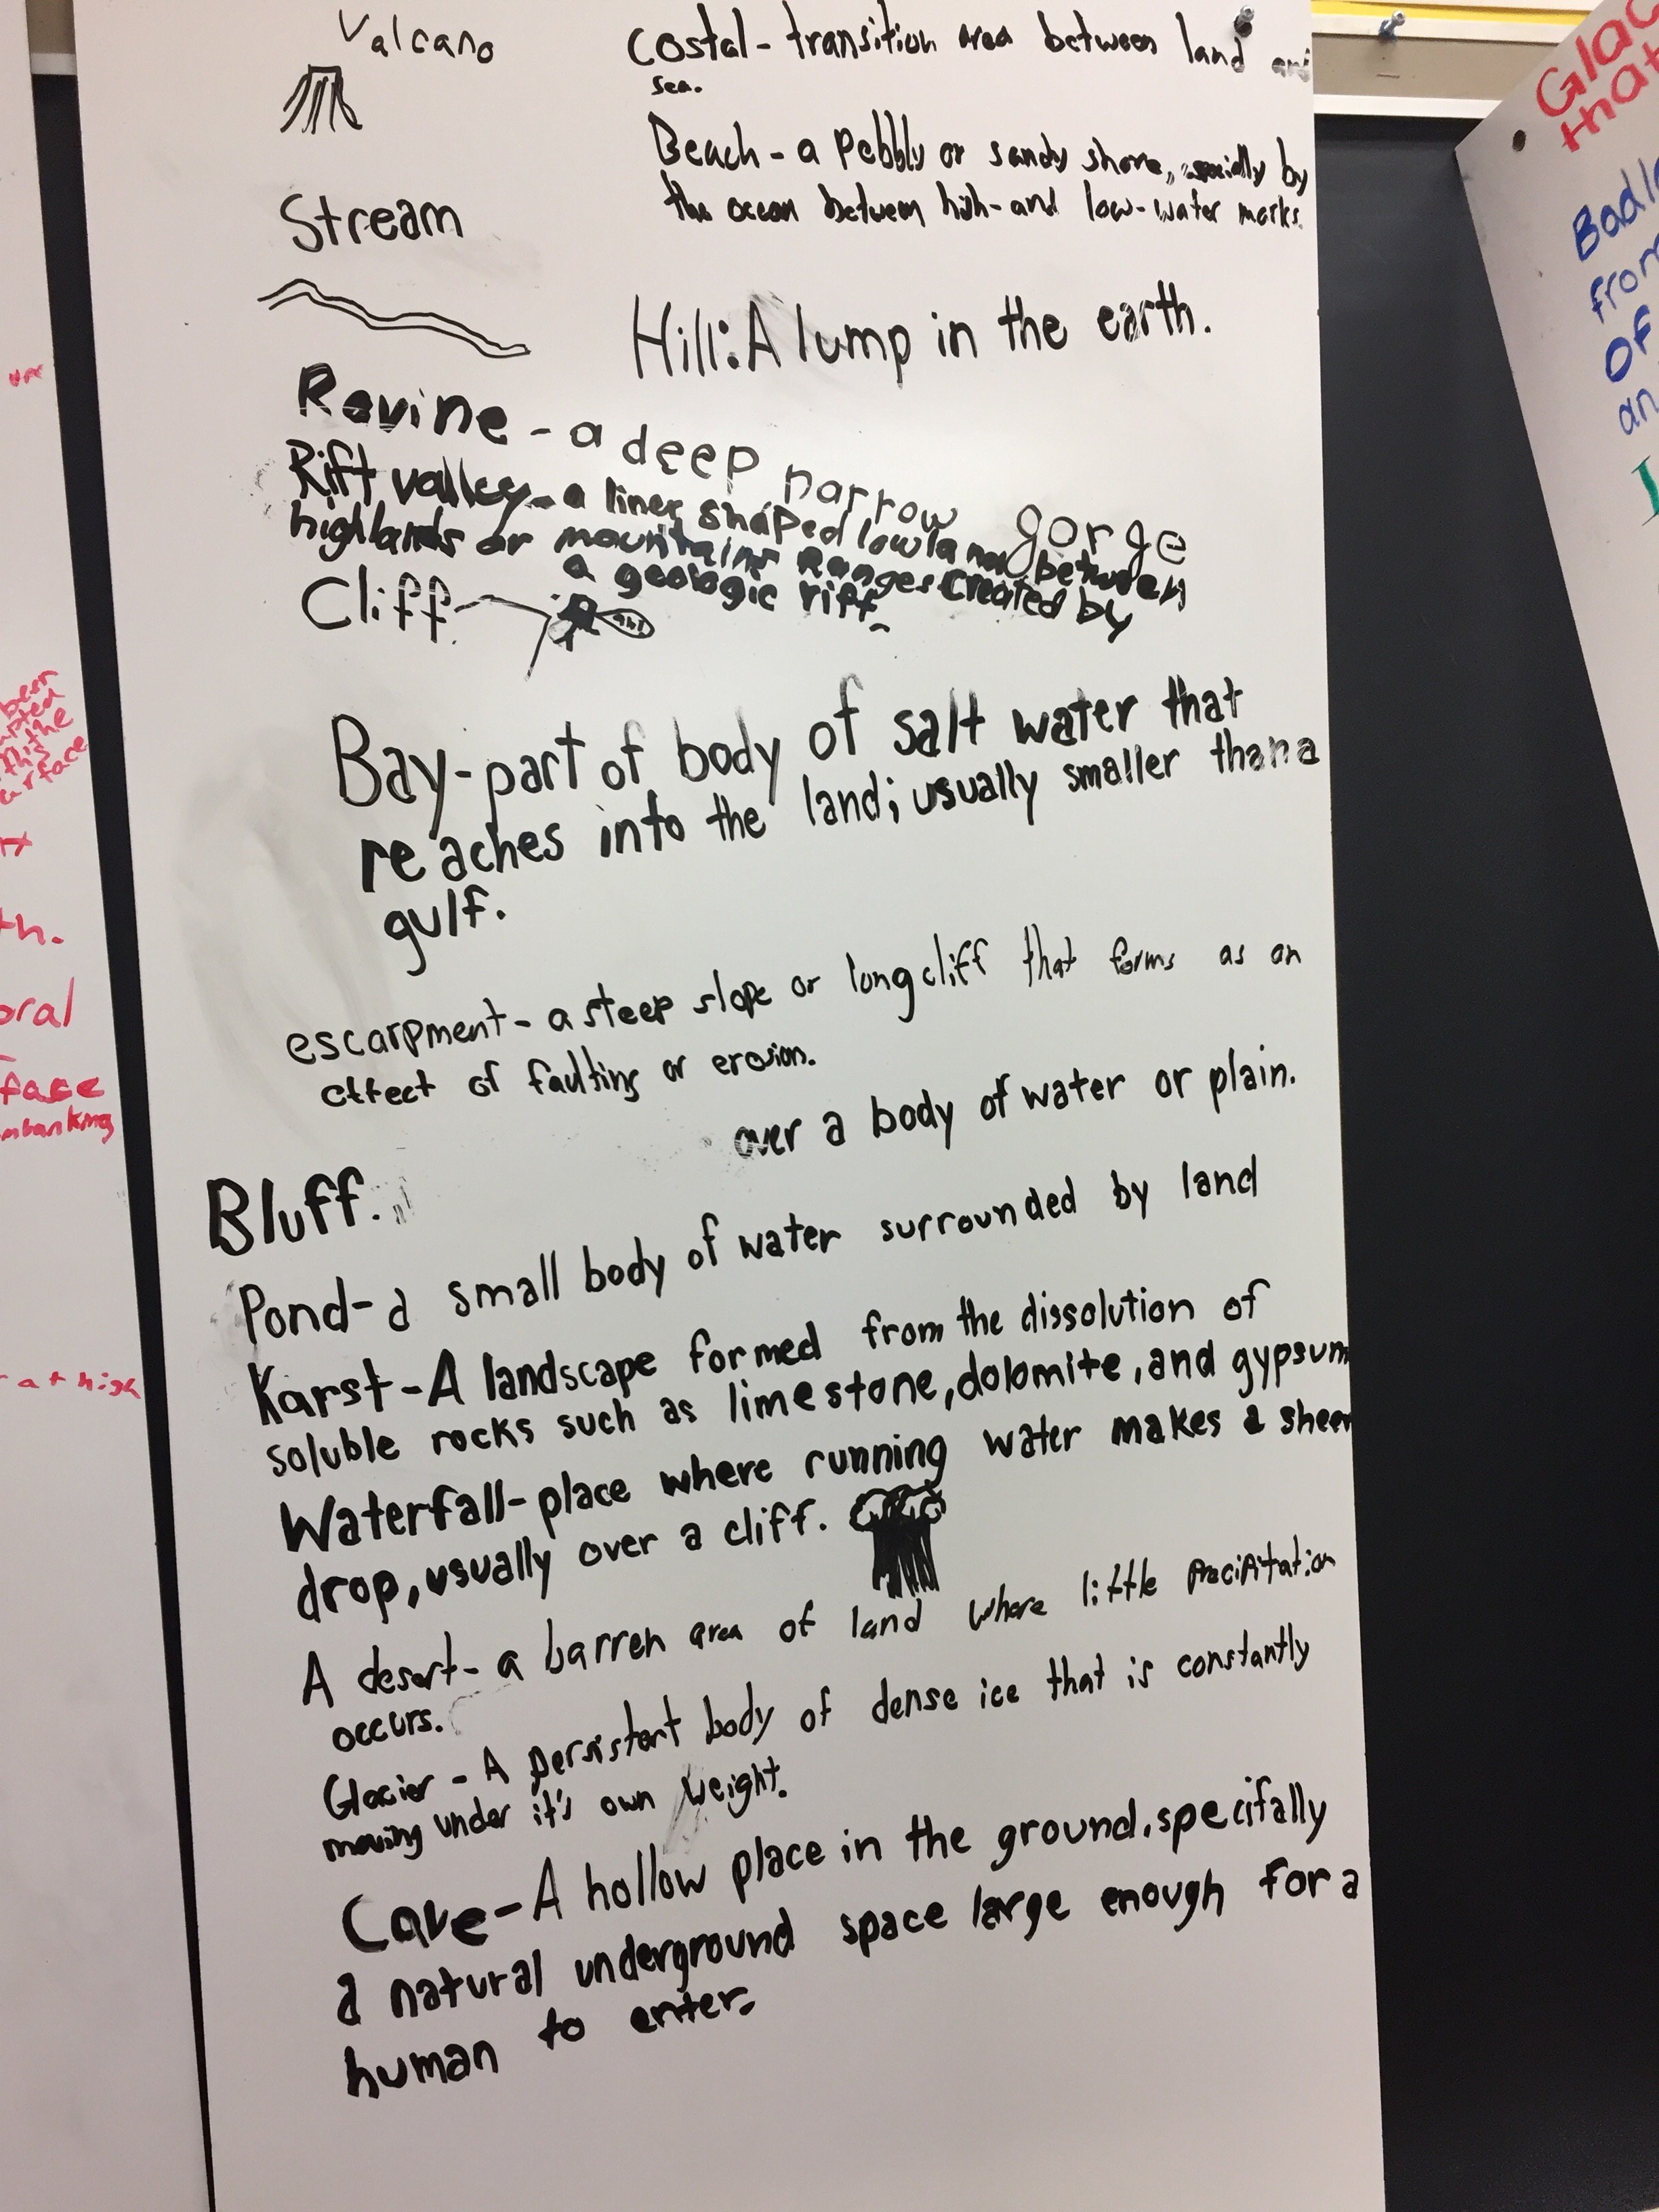 Valcano
Costal - transition area between land and
sea.
Beach - a Pebbly or sandy shore, especially by
the ocean between high- and low-water marks.
Stream
Hill: A lump in the earth.
Ravine - a deep narrow gorge
Rift valley - a liner shaped lowland between
highlands or mountains Ranges created by
a geologic rift.
Cliff
Bay - part of body of salt water that
reaches into the land; usually smaller than a
gulf.
escarpment - a steep slope or long cliff that forms as an
effect of faulting or erosion.
over a body of water or plain.
Bluff.
Pond - a small body of water surrounded by land
Karst - A landscape formed from the dissolution of
soluble rocks such as limestone, dolomite, and gypsum
Waterfall - place where running water makes a sheer
drop, usually over a cliff.
A desert - a barren area of land where little Precipitation
occurs.
Glacier - A persistent body of dense ice that is constantly
moving under it's own weight.
Cave - A hollow place in the ground, specifally
a natural underground space large enough for a
human to enter.
been
the
this
th.
oral
face
at high
Glac
that
Badl
from
OF
an